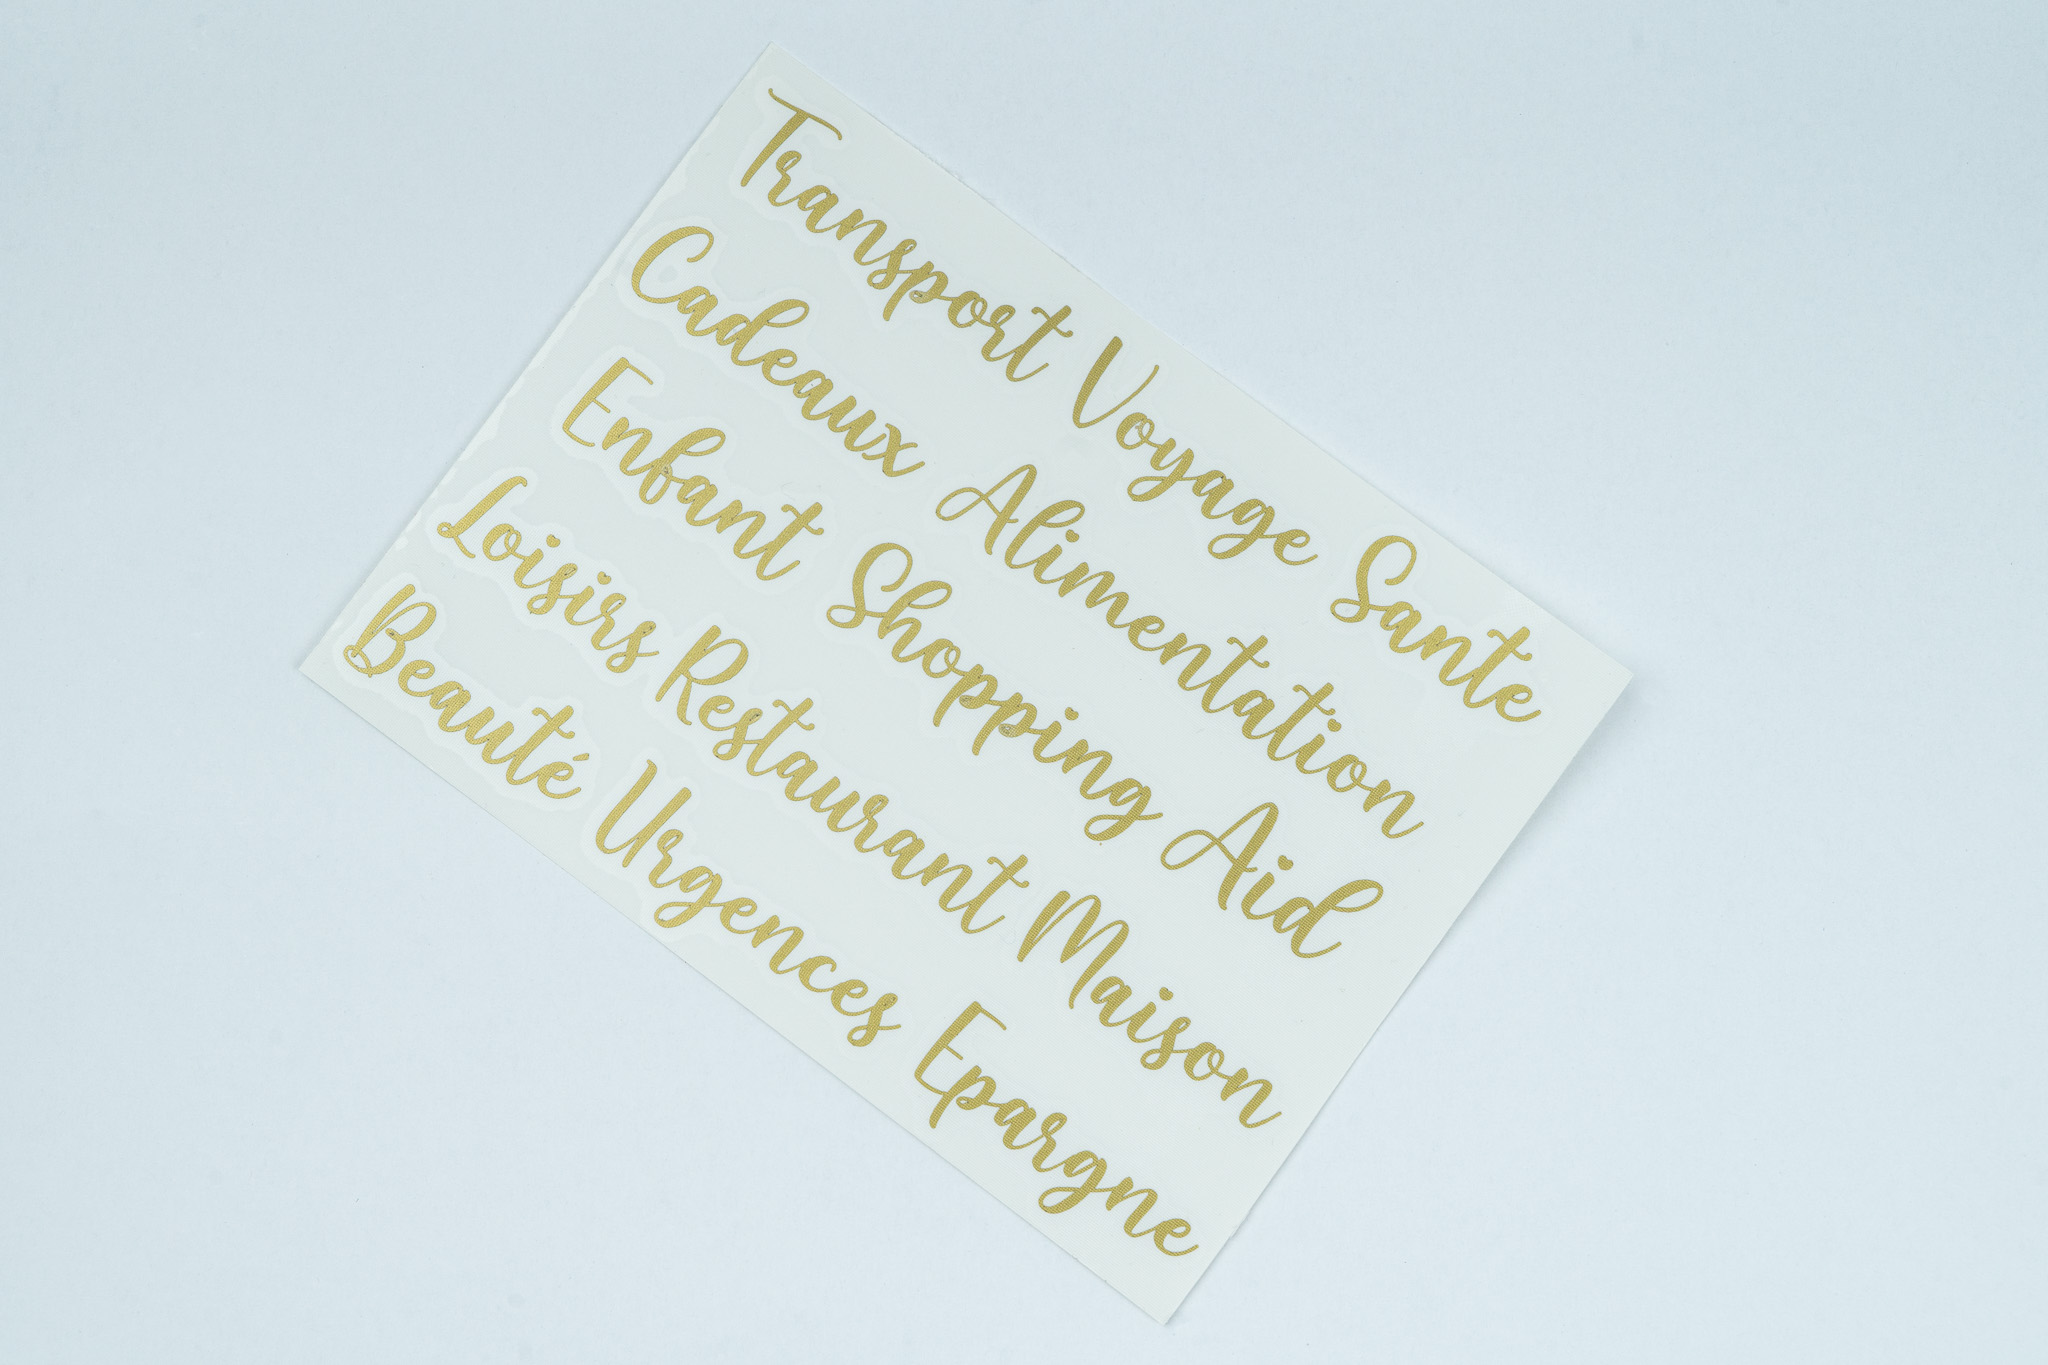 Transport Voyage Sante
Cadeaux Alimentation
Enfant Shopping Aid
Loisirs Restaurant Maison
Beauté Urgences Epargne